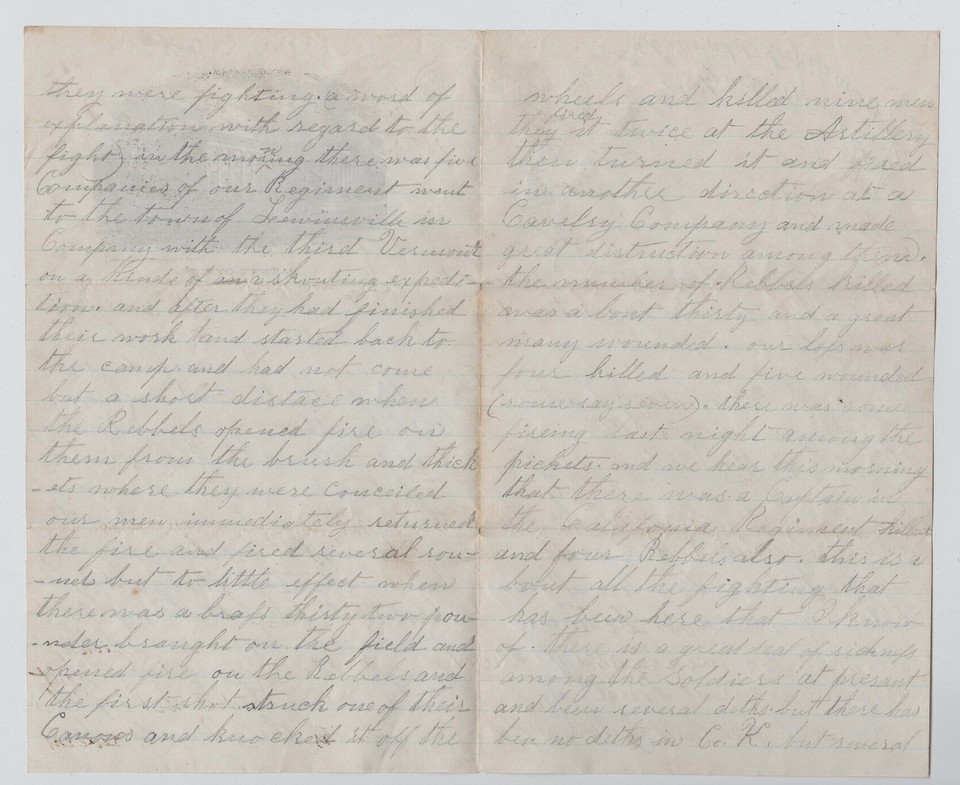 they were fighting. a word of
explanation with regard to the
fight, in the morning there was five
Companies of our Regiment went
to the town of Lewinsville in
Company with the third Vermont
on a kinde of a skouting expedi-
tion. and after they had finished
their work and started back to
the camp and had not come
but a short distace when
the Rebbels opened fire on
them from the brush and thick
-ets where they were conceiled
our men immediately returned
the fire and fired several rou-
-nds but to little effect when
there was a brass thirty two pou-
-nder brought on the field and
opened fire on the Rebbels and
the first shot struck one of their
Canons and knocked it off the
wheels and killed nine men
they fired it twice at the Artillery
then turned it and fired
in another direction at a
Cavelry Company and made
great distruction among them.
the number of Rebbels killed
was a bout thirty and a great
many wounded. our loss was
four killed and five wounded
(some say seven). there was some
fireing last night among the
pickets. and we hear this morning
that there was a Captain in
the Calafonia Regiment killed
and four Rebbels also. this is a
bout all the fighting that
has been here that I know
of. there is a great deal of sickness
among the soldiers at presant
and been several deths but there has
ben no deths in Co. K. but several